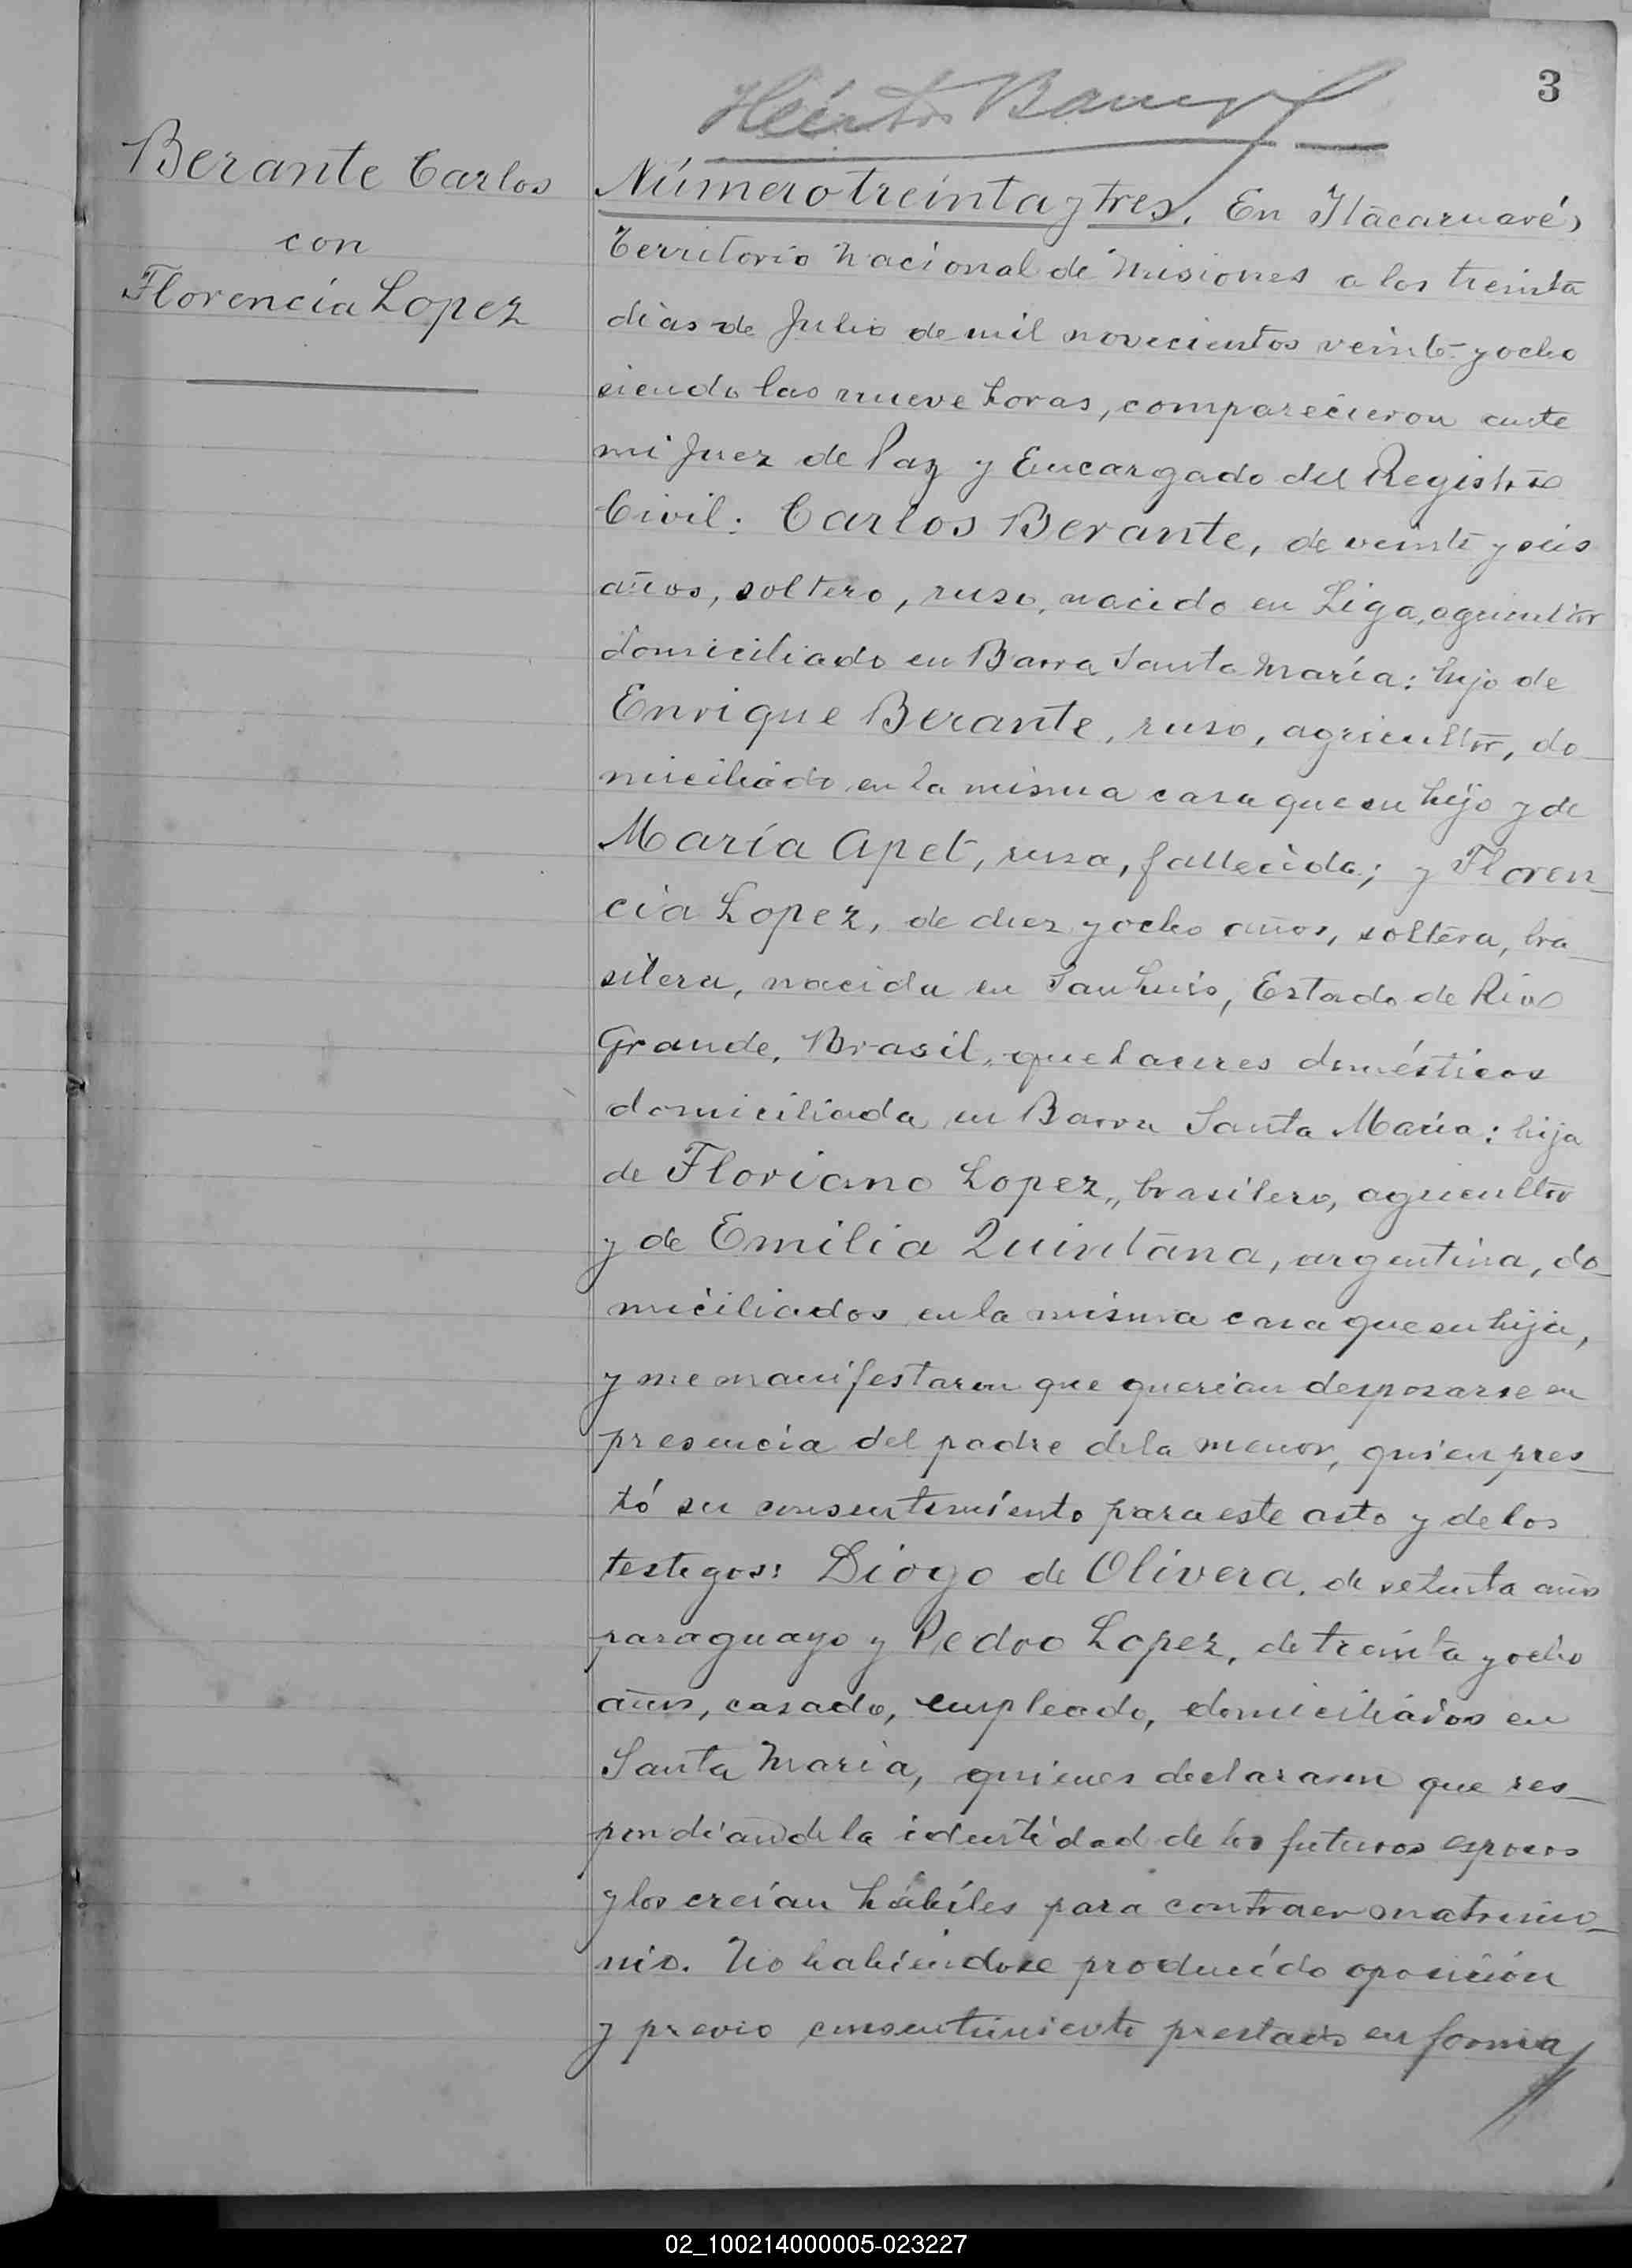 3
Berante Carlos
con
Florencia Lopez
Número treinta y tres. En Itacaruaré,
Territorio Nacional de Misiones a los treinta
dias de Julio de mil novecientos veinte y ocho
siendo las nueve horas, comparecieron ante
mi Juez de Paz y Encargado del Registro
Civil: Carlos Berante, de veinte y seis
años, soltero, ruso, nacido en Liga, agricultor
domiciliado en Barra Santa María: hijo de
Enrique Berante, ruso, agricultor, do_
miciliado en la misma casa que su hijo y de
María Apet, rusa, fallecida; y Floren_
cia Lopez, de diez y ocho años, soltera, bra_
silera, nacida en San Luis, Estado de Rio
Grande, Brasil, quehaceres domésticos
domiciliada en Barra Santa María: hija
de Floriano Lopez, brasilero, agricultor
y de Emilia Quintana, argentina, do_
miciliados en la misma casa que su hija,
y me manifestaron que querian desposarse en
presencia del padre de la menor, quien pres_
tó su consentimiento para este acto y de los
testigos: Diogo de Olivera, de setenta años
paraguayo y Pedro Lopez, de treinta y ocho
años, casado, empleado, domiciliados en
Santa María, quienes declararon que res_
pondian de la identidad de los futuros esposos
y los creían hábiles para contraer matrimo_
nio. No habiendose producido oposición
y previo consentimiento prestado en forma
02_100214000005-023227